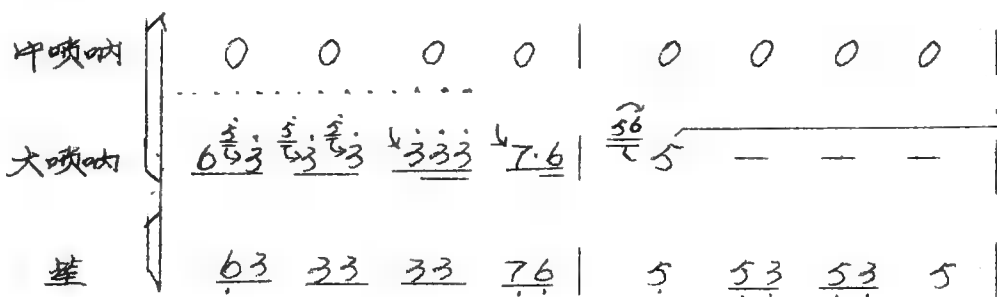 中唢呐 0 0 0 0 | 0 0 0 0
大唢呐 6 5 3 5 3 5 3 3 3 3 7·6 | 56 5 — — —
笙 63 33 33 76 | 5 53 53 5